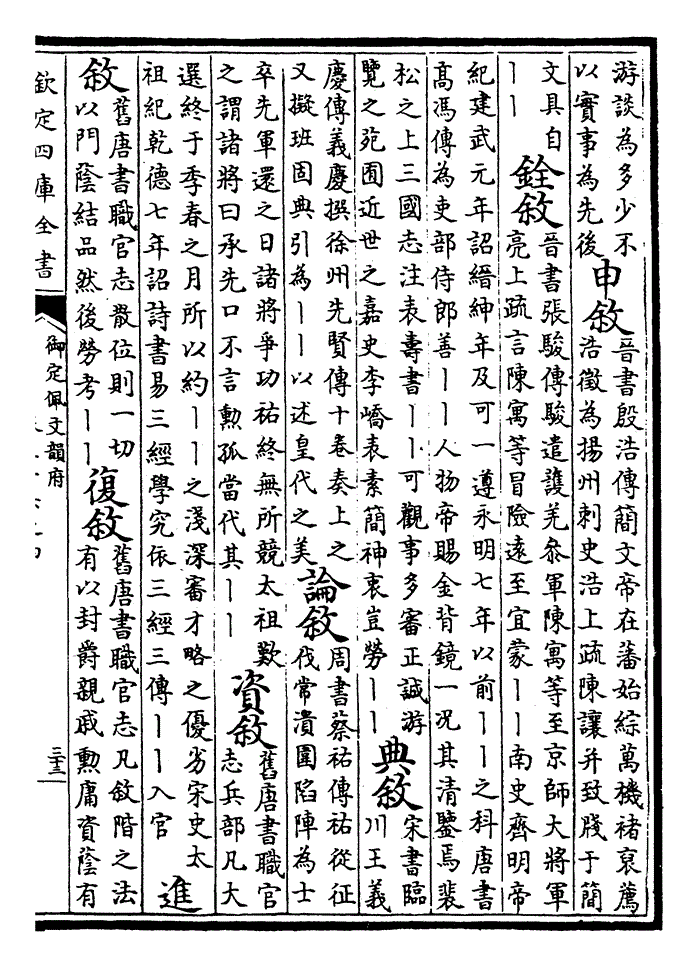 游談為多少不
以實事為先後
申敘
晉書殷浩傳簡文帝在藩始綜萬機褚裒薦
浩徵為揚州刺史浩上疏陳讓并致牋于簡
文具自
丨丨
銓敘
晉書張駿傳駿遣護羌叅軍陳寓等至京師大將軍
亮上疏言陳寓等冒險遠至宜蒙丨丨南史齊明帝
紀建武元年詔縉紳年及可一遵永明七年以前丨丨之科唐書
髙馮傳為吏部侍郎善丨丨人物帝賜金背鏡一况其清鑒焉裴
松之上三國志注表壽書丨丨可觀事多審正誠游
覽之苑囿近世之嘉史李嶠表素簡神衷豈勞丨丨
典敘
宋書臨
川王義
慶傳義慶撰徐州先賢傳十卷奏上之
又擬班固典引為丨丨以述皇代之美
論敘
周書蔡祐傳祐從征
伐常潰圍陷陣為士
卒先軍還之日諸將爭功祐終無所競太祖歎
之謂諸將曰承先口不言勲孤當代其丨丨
資敘
舊唐書職官
志兵部凡大
選終于季春之月所以約丨丨之淺深審才略之優劣宋史太
祖紀乾德七年詔詩書易三經學究依三經三傳丨丨入官
進
敘
舊唐書職官志散位則一切
以門蔭結品然後勞考丨丨
復敘
舊唐書職官志凡敘階之法
有以封爵親戚勲庸資蔭有
欽定四庫全書
御定佩文韻府
三十三